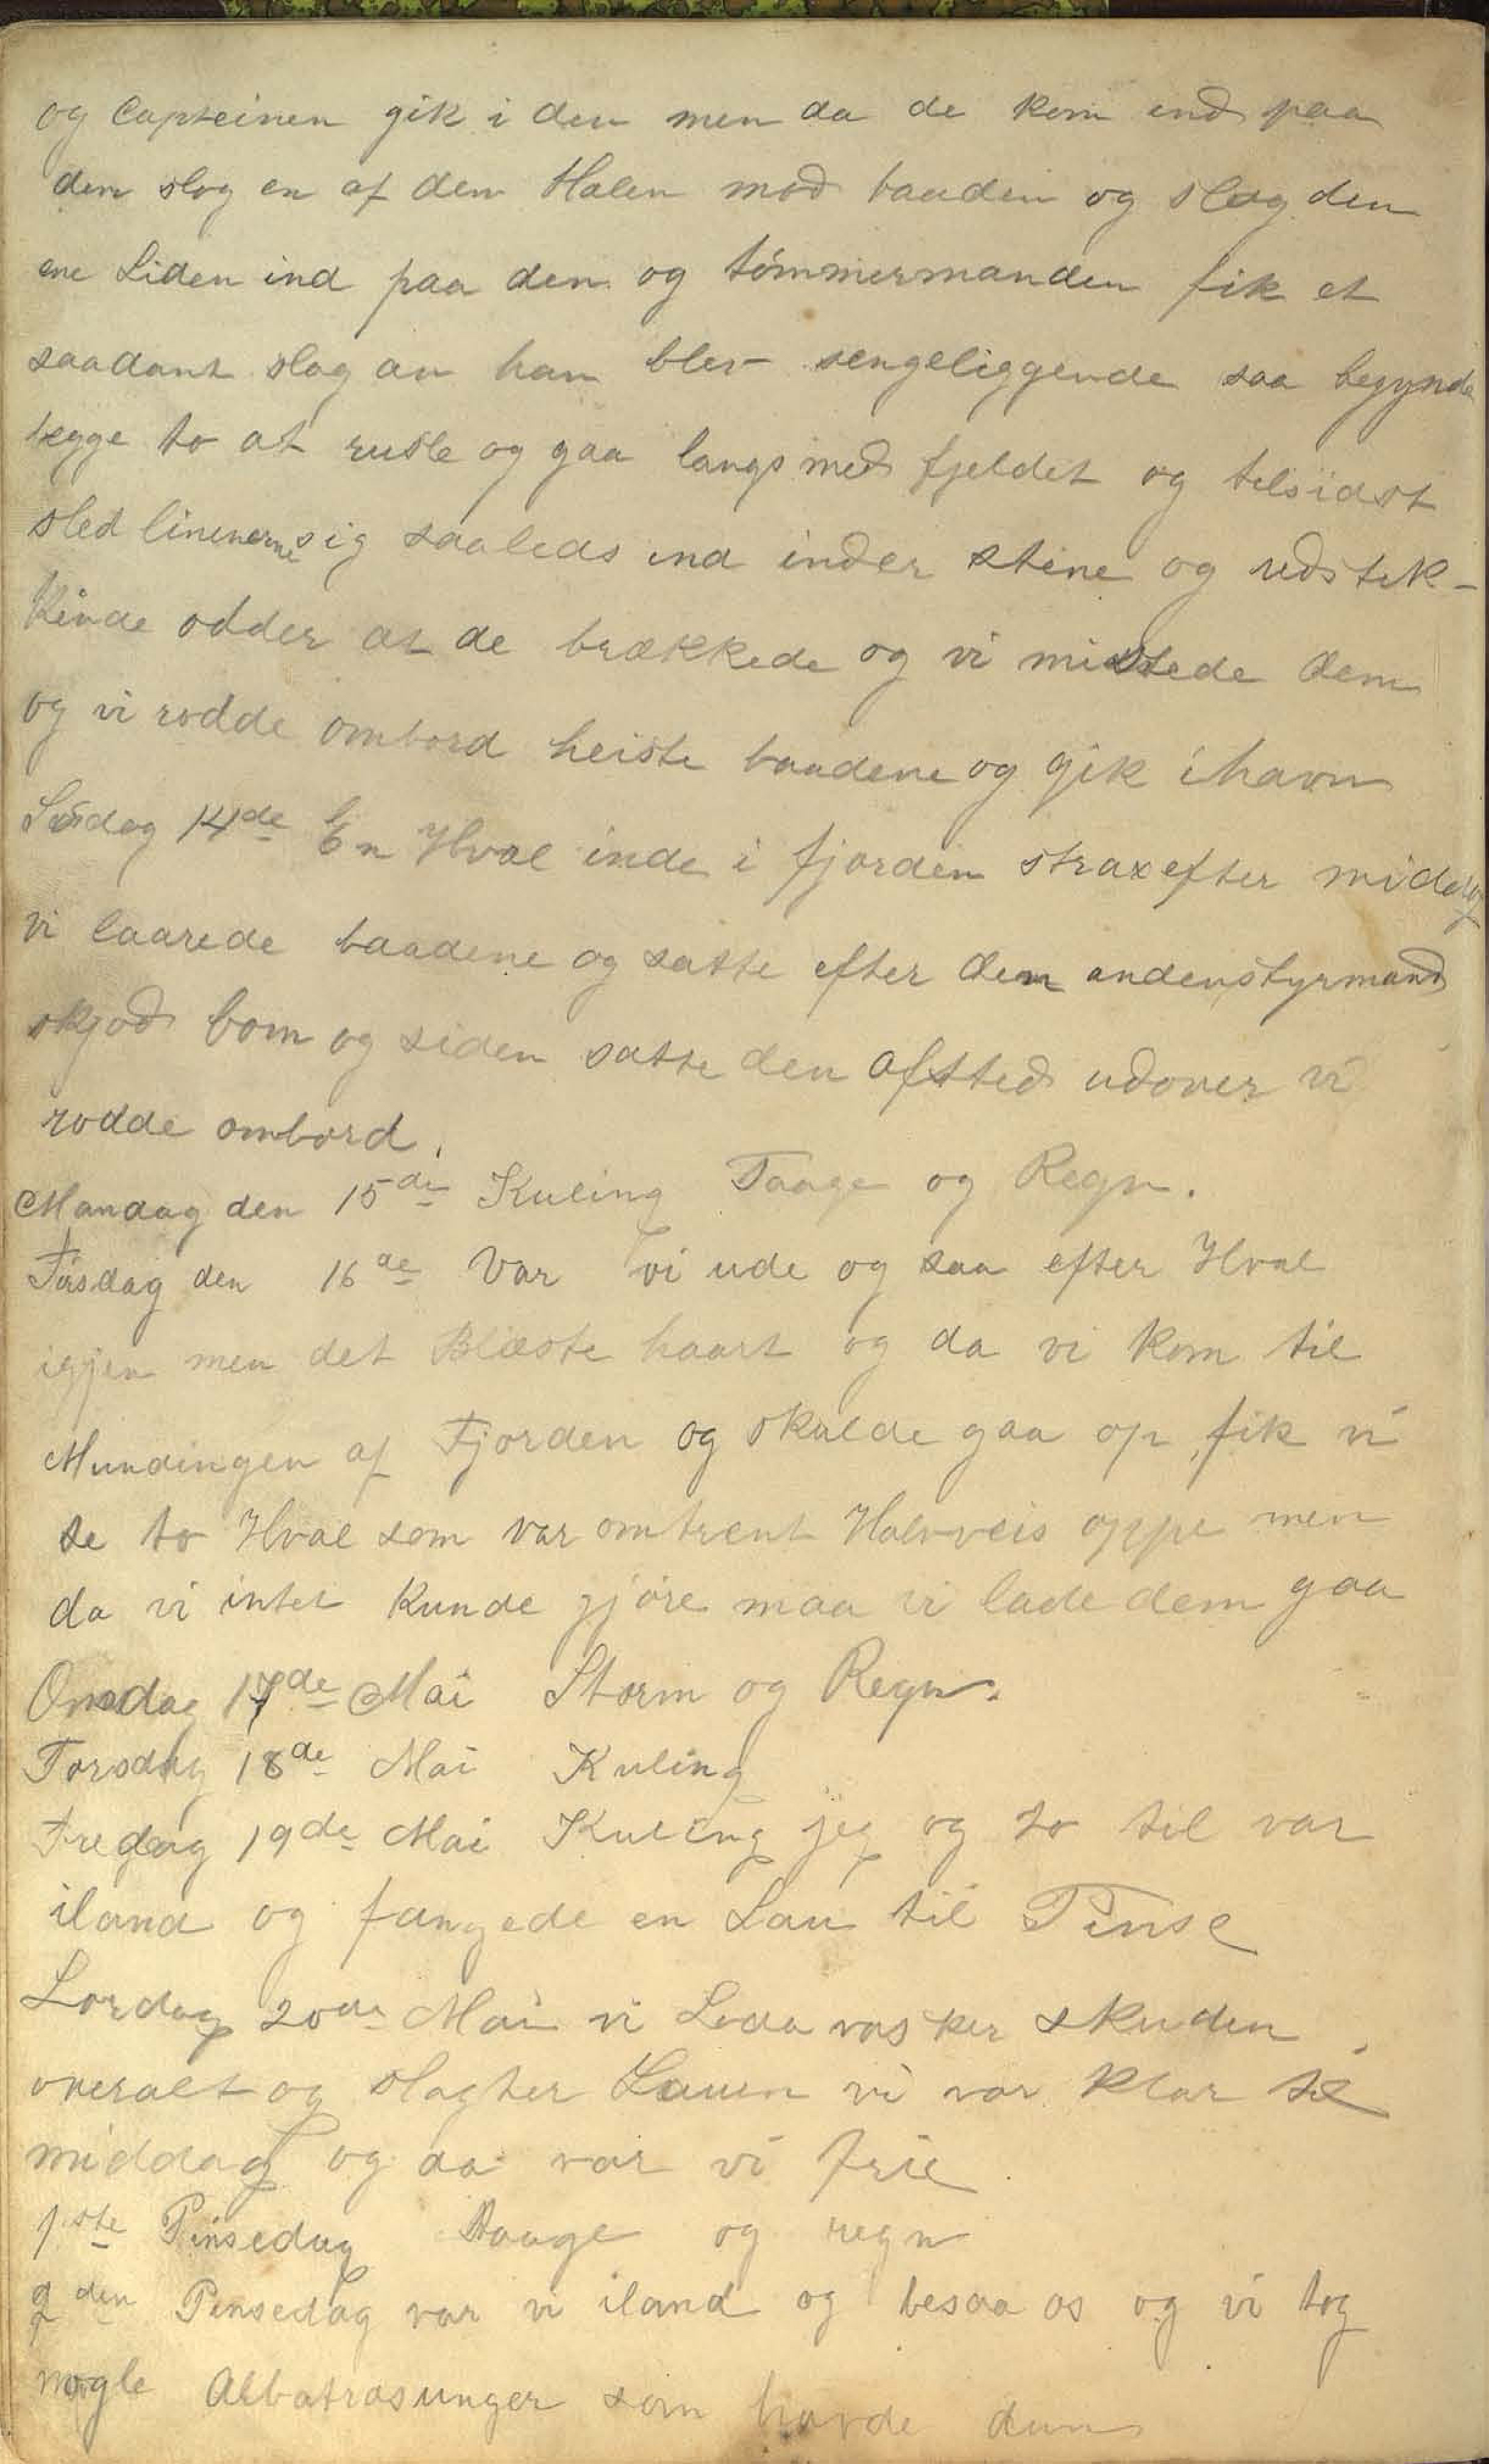 og Capteinen gik i den men da de kom ind paa
dem slog en af dem Halen mod baaden og slog den
ene Siden ind paa den og tömmermanden fik et
saadant slag an han blev sengeliggende saa begynde
begge to at rusle og gaa langs med fjeldet og tilsidst
sled linenerne sig saaleds ind inder stene og udstik-
kinde odder at de brækkede og vi mistede dem
og vi rodde ombord heiste baadene og gik ihavn
Södag 14de En Hval inde i fjorden strax efter middag
vi laarede baadene og satte efter den andenstyrmand
skjød bom og siden satte den afsted udover vi
rodde ombord.
Mandag den 15de Kuling Taage og Regn.
Tirsdag den 16de Var vi ude og saa efter Hval
igjen men det Blæste haart og da vi kom til
Mundingen af Fjorden og skulde gaa op fik vi
se to Hval som var omtrent Halvveis oppe men
da vi intet kunde gjøre maa vi lade dem gaa
Onsdag 17de Mai Storm og Regn.
Torsdag 18de Mai Kuling
Fredag 19de Mai Kuling jeg og to til var
iland og fangede en Sau til Pinse
Lordag 20de Mai vi Soda vasker skuden
overalt og slagter Sauen vi var klar til
middag og da var vi frie
1ste Pinsedag Taage og regn
2den Pinsedag var vi iland og besaa os og vi tog
nogle Albatrosunger som havde dun